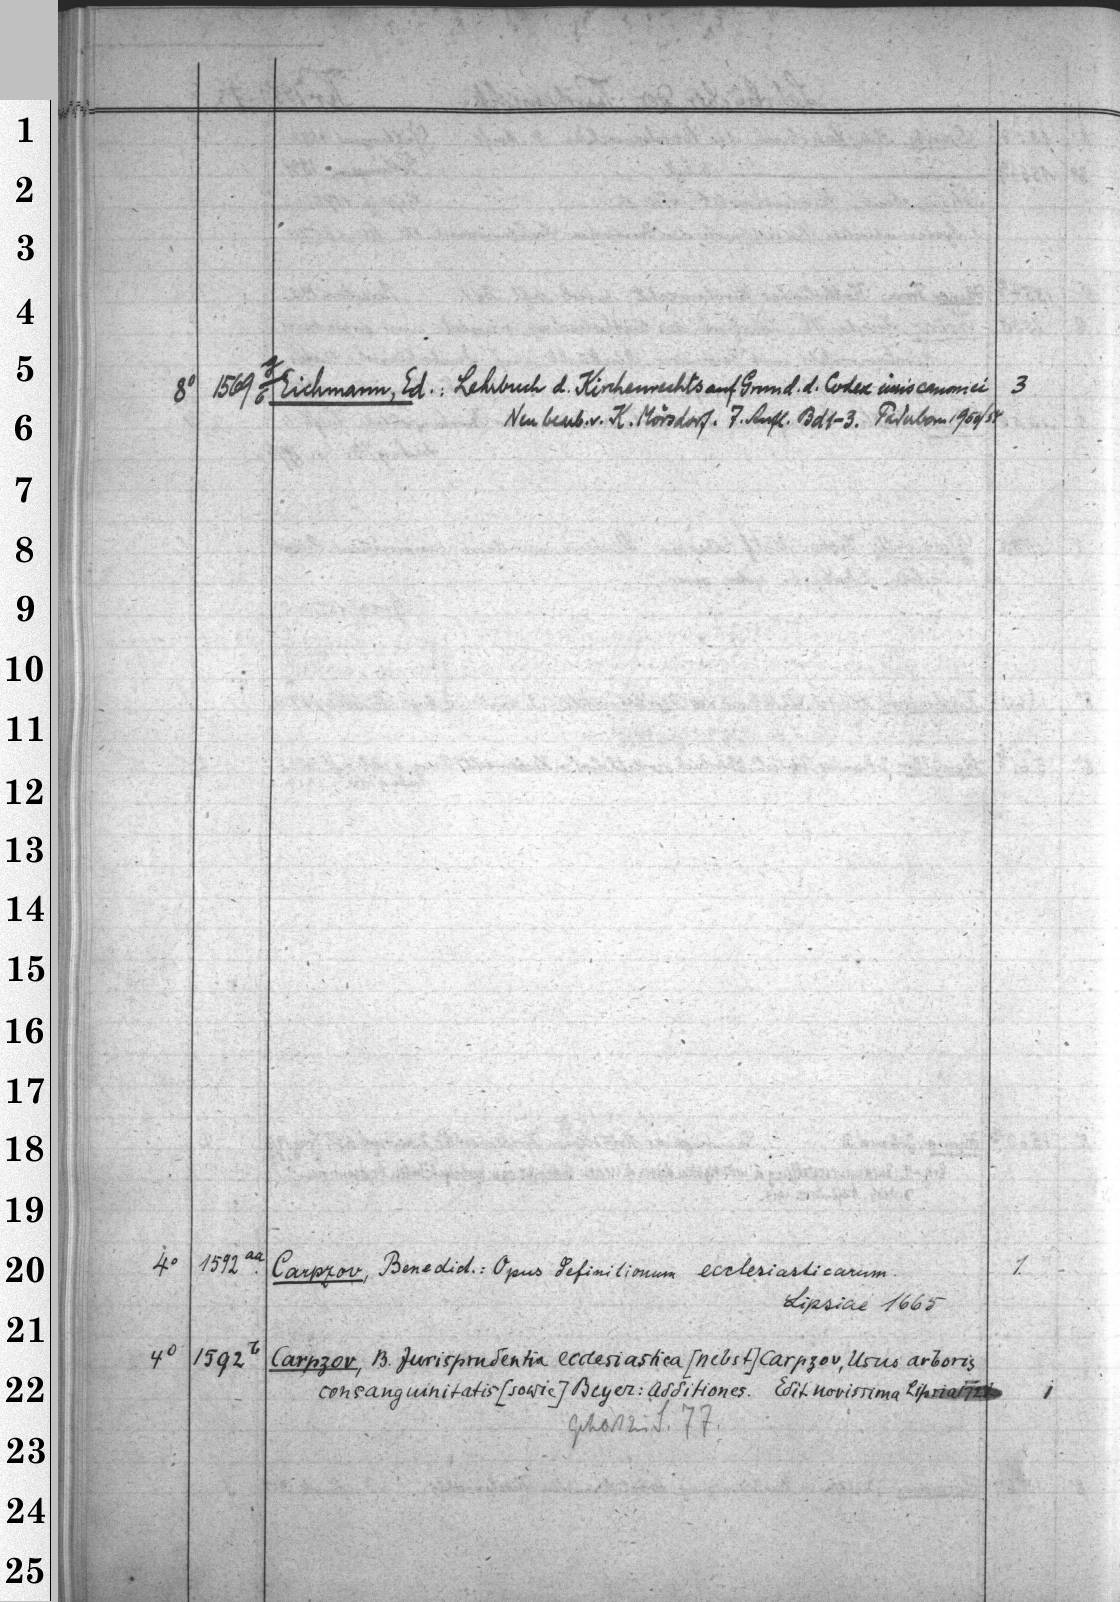 1
2
3
4
5
8° 1569 Eichmann, Ed.: Lehrbuch d. Kirchenrechts auf Grund. d. Codex iuris canonici 3
6
Neu bearb. v. K. Mörsdorf. 7. Aufl. Bd 1-3. Paderborn
7
8
9
10
11
12
13
14
15
16
17
18
19
20
4° 1592 aa Carpzov, Benedict.: Opus definitionum ecclesiasticarum. 1
Lipsiae 1665
21
4° 1592 b Carpzov, B. Jurisprudentia ecclesiastica [nebst] Carpzov, Usus arboris
22
consanguinitatis [sowie] Beyer: Additiones. Edit. novissima 1
gehört zu S. 77.
23
24
25